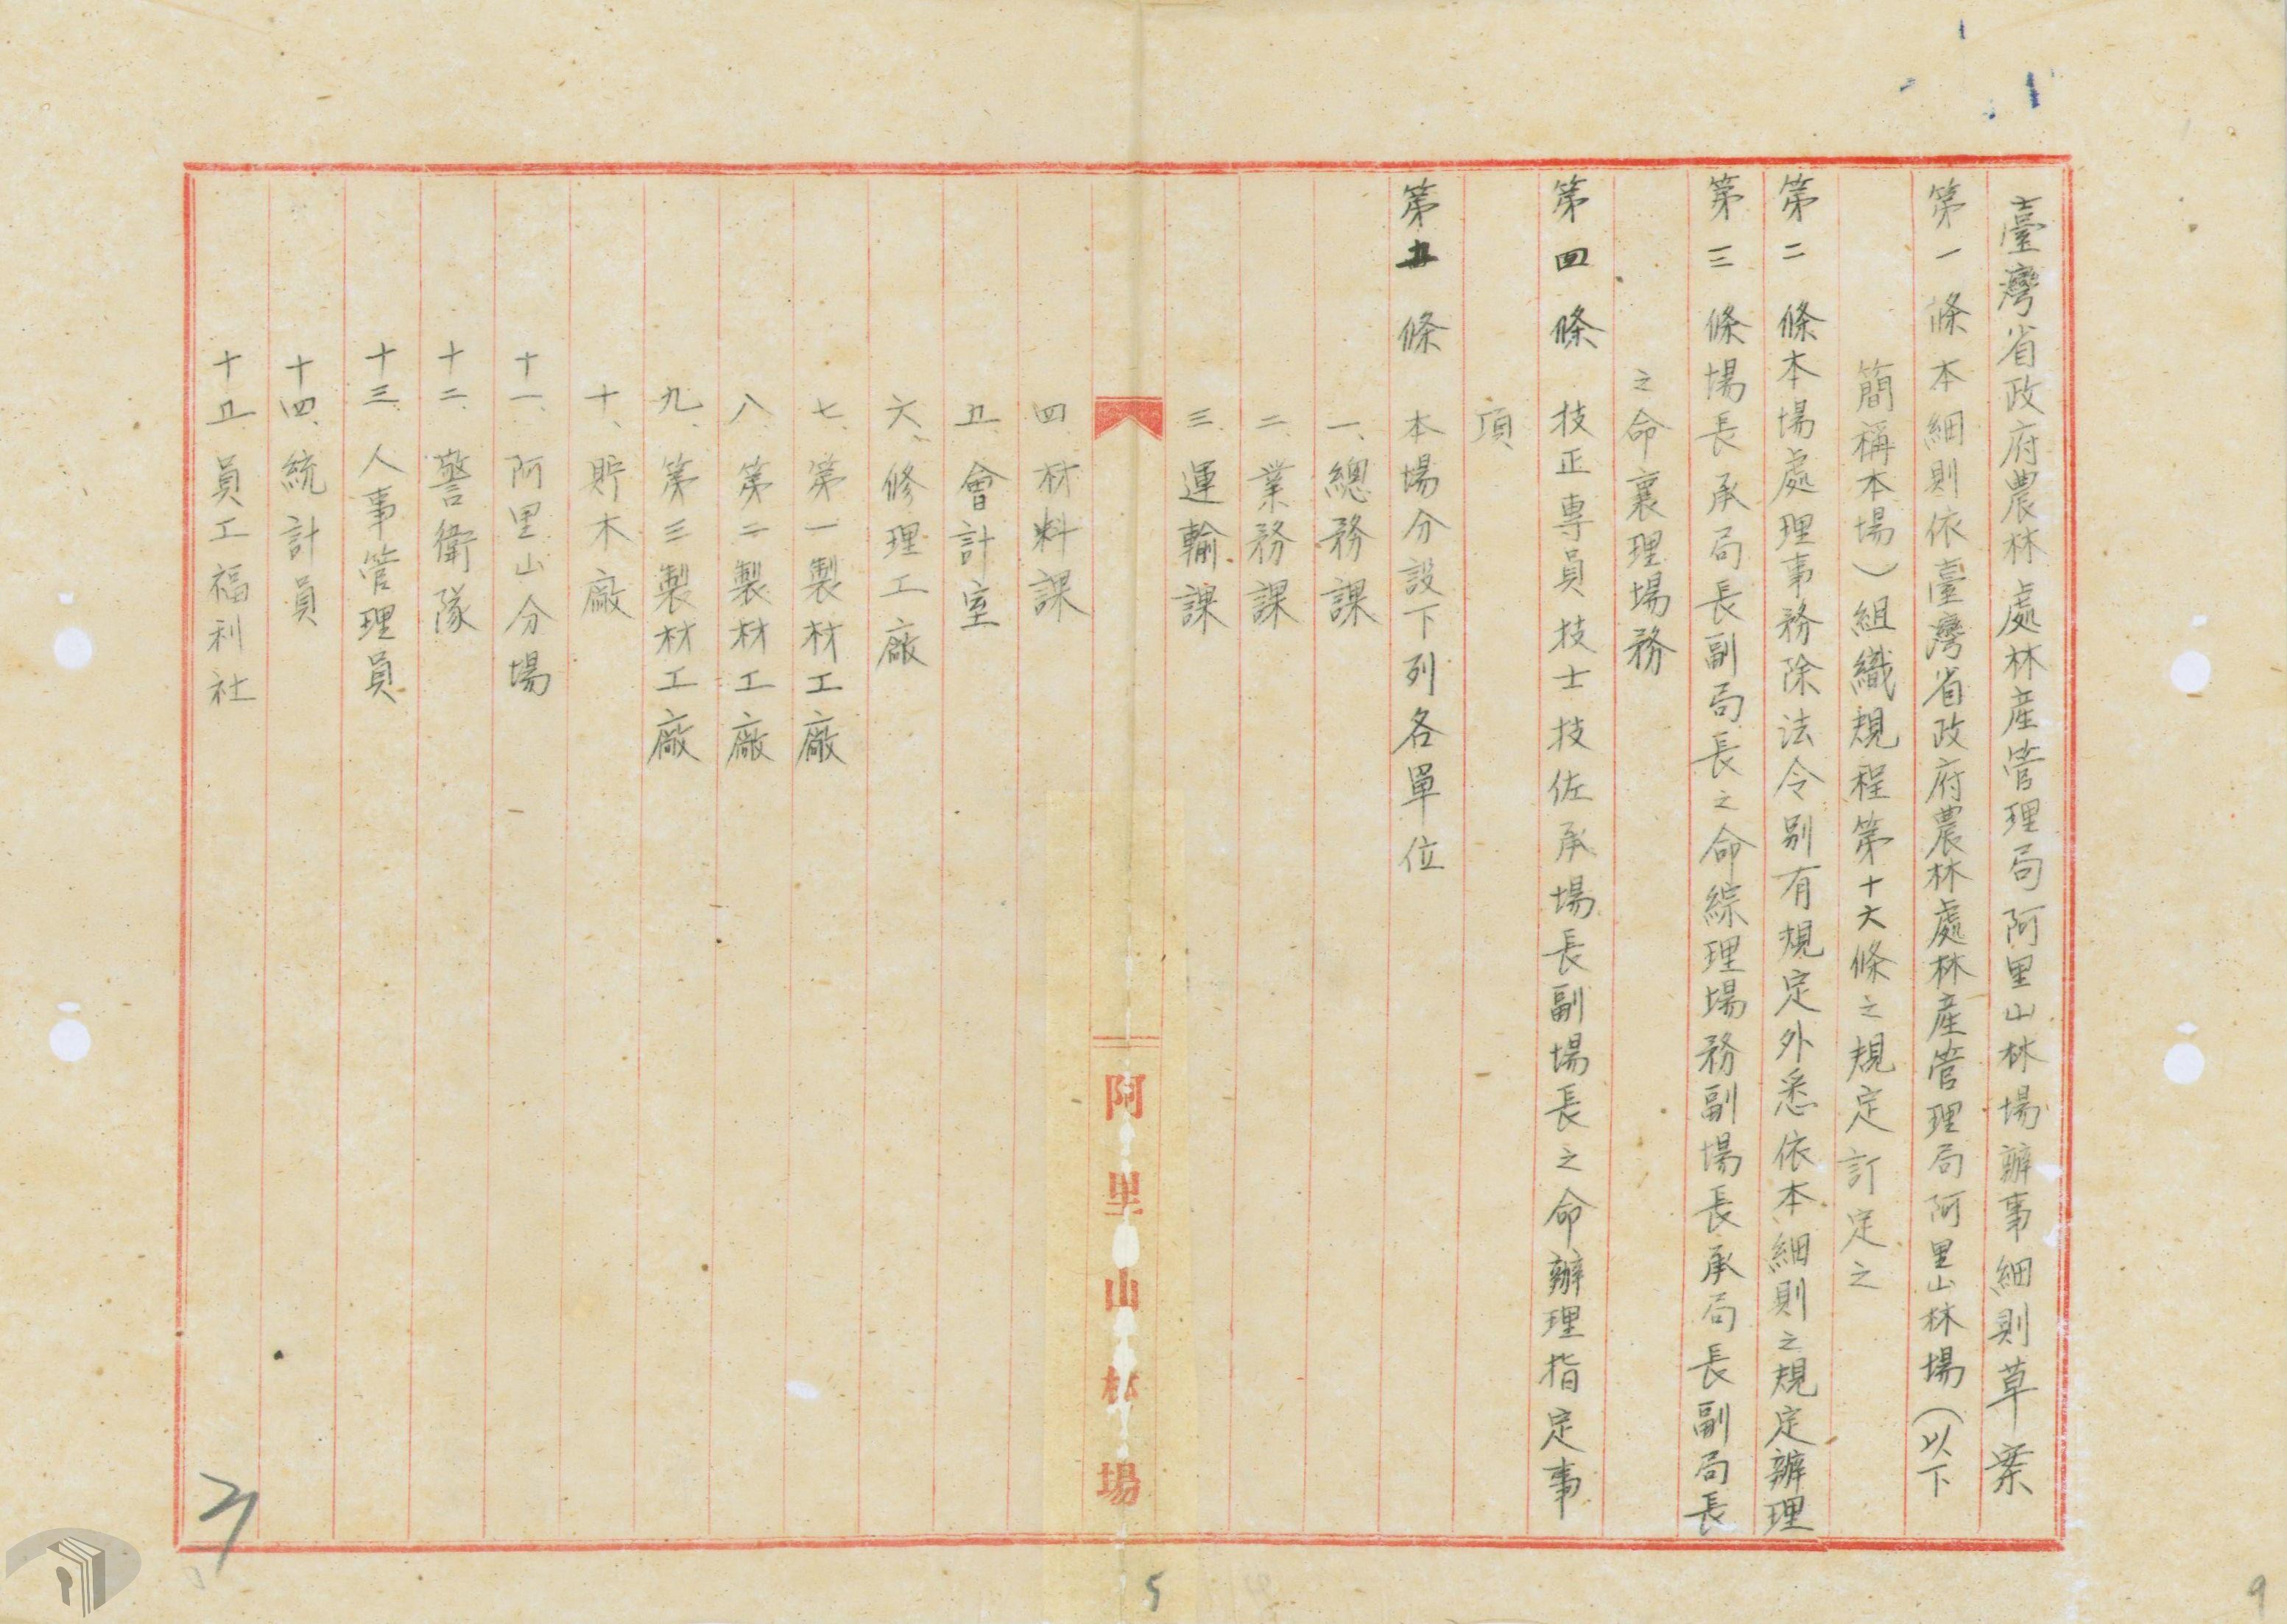 臺灣省政府農林處林產管理局阿里山林場辦事細則草案
第一條本細則依臺灣省政府農林處林產管理局阿里山林場（以下
簡稱本場）組織規程第十六條之規定訂定之
第二條本場處理事務除法令別有規定外悉依本細則之規定辦理
第三條場長承局長副局長之命綜理場務副場長承局長副局長
之命襄理場務
第四條 技正專員技士技佐承場長副場長之命辦理指定事
項
第五條 本場分設下列各單位
一、總務課
二、業務課
三、運輸課
阿里山林場
四、材料課
五、會計室
六、修理工廠
七、第一製材工廠
八、第二製材工廠
九、第三製材工廠
十、貯木廠
十一、阿里山分場
十二、警衛隊
十三、人事管理員
十四、統計員
十五、員工福利社
5
9